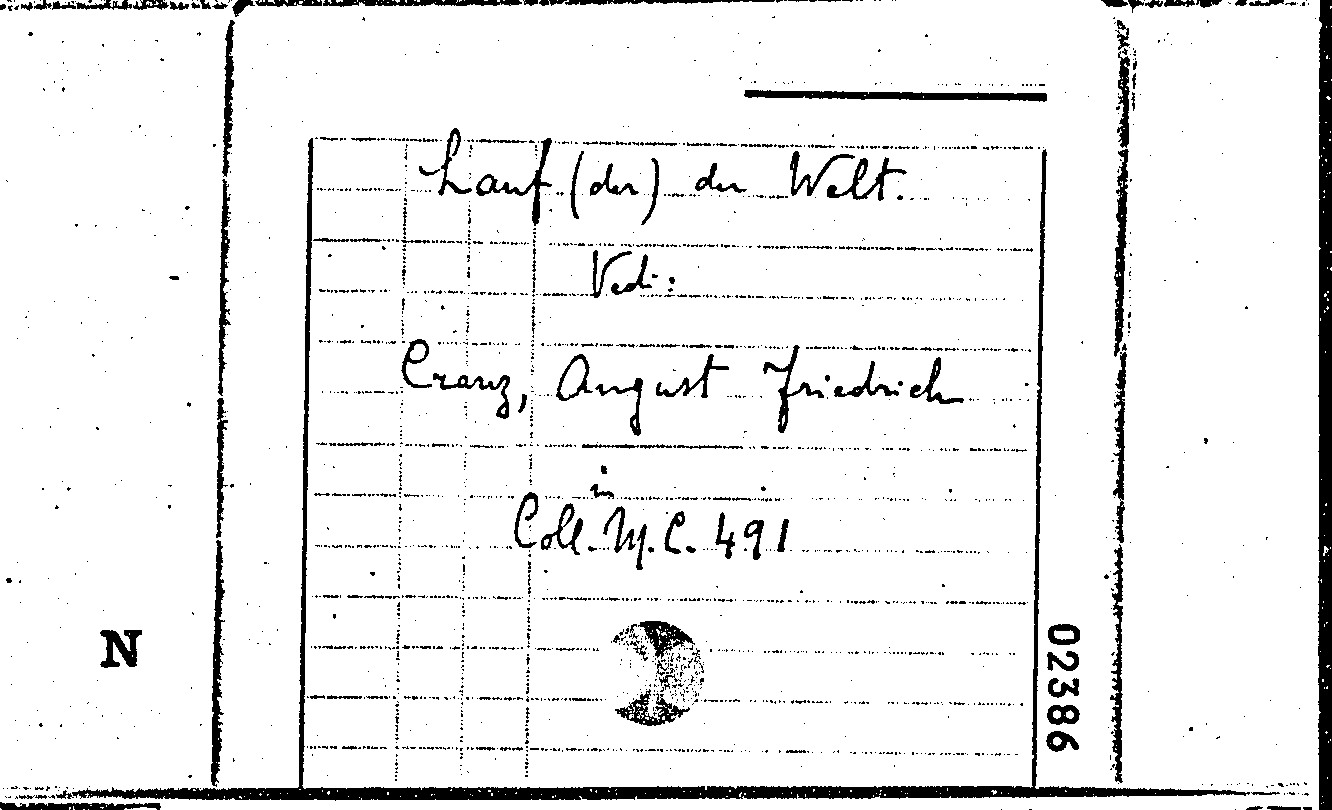 Lauf (der) der Welt.
Vedi:
Cranz, August Friedrich
in
Coll. M. C. 491
N
02386